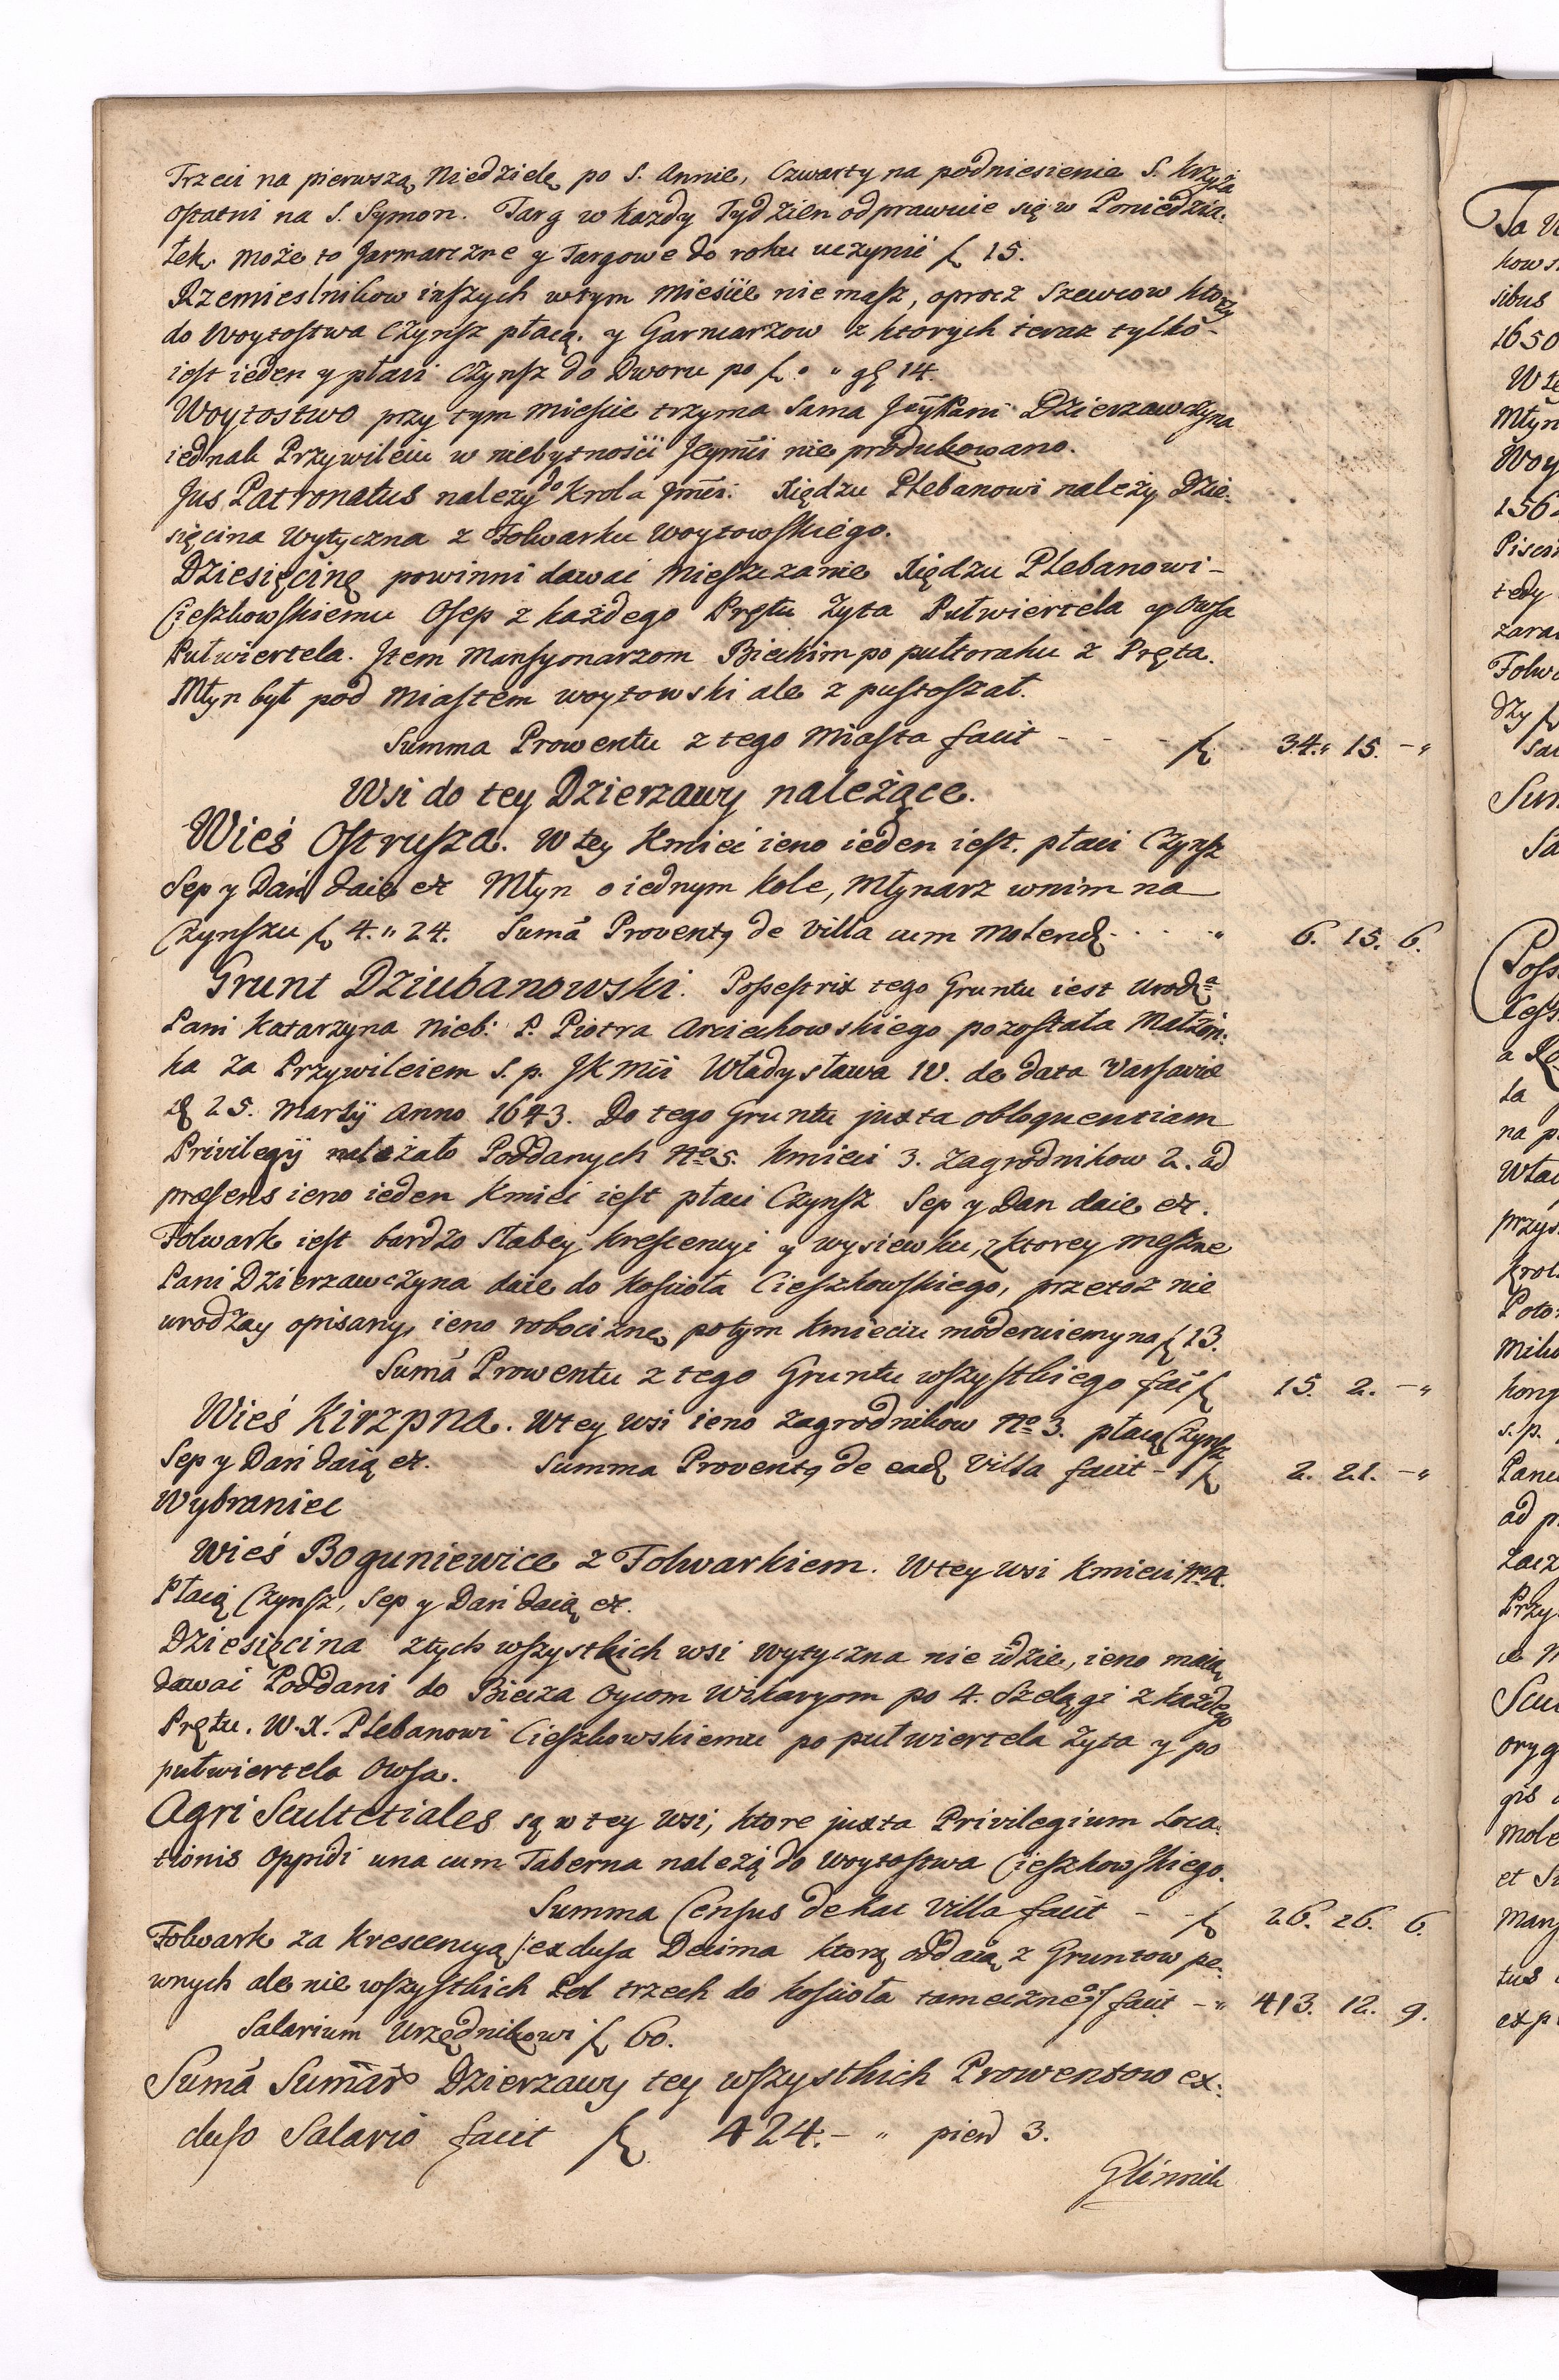 Trzeci na pierwszą Niedzielę po S. Annie, Czwarty na podniesienie S. Krzyża
Ostatni na S. Symon. Targ w każdy Tydzien odprawuie się w Poniedzia-
łek. może to Jarmarczne y Targowe do roku uczynić f 15.
Rzemieslnikow inszych wtym mieście nie masz, oprocz Szewcow ktorzy
do Woytostwa Czynsz płacą. y Garncarzow z ktorych teraz tylko-
iest ieden y płaci Czynsz do Dworu po f. " gl 14.
Woytostwo przy tym mieście trzyma Sama JeyPani Dzierzawczyna
iednak Przywileiu w niebytności Jeymci nie produkowano.
Jus Patronatus nalezy do Krola Jmci. Xiędzu Plebanowi należy Dzie-
sięcina Wytyczna z Folwarku Woytowskiego.
Dziesięcinę powinni dawac Mieszczanie Xiędzu Plebanowi-
Cieszkowskiemu Osep z każdego Prętu Zyta Putwiertela y Owsa
Putwiertela. Item Mansyonarzom Bieckim po pułtoraku z Pręta.
Młyn był pod miastem woytowski ale z pustoszał.
Summa Prowentu z tego Miasta facit - - - f 34. " 15. - "
Wsi do tey Dzierzawy należące.
Wieś Ostrusza. W tey Kmieć ieno ieden iest. płaci Czynsz
Sep y Dań daie etc Młyn o iednym kole, Młynarz wnim na
Czynszu f 4. " 24. Sumā Provent9 de Villa cum Molend. . . . " 6. 15. 6.
Grunt Dziubanowski. Possestrix tego Gruntu iest Urodz.a
Pani Katarzyna Nieb: P. Piotra Arciechowskiego pozostała Małżon-
ka za Przywileiem s. p. JKMci Władysława IV. de data Varsavie
d 25. Martij Anno 1643. Do tego Gruntu juxta obloquentiam
Privilegij należało Poddanych No 5. Kmieci 3. Zagrodnikow 2. ad
præsens ieno ieden Kmieć iest płaci Czynsz Sep y Dan daie etc.
Folwark iest bardzo słabey krescencyi y wysiewku, z ktorey meszne
Pani Dzierzawczyna daie do Kościoła Cieszkowskiego, przetoz nie
urodzay opisany, ieno robociznę potym Kmieciu moderuiemy na f 13.
Sumā Prowentu z tego Gruntu wszystkiego faci f 15 2. - "
Wieś Kirzpna. Wtey wsi ieno zagrodnikow No 3. płacą Czynsz
Sep y Dań daią etc. Summa Provent9 de ead Villa facit - f 2. 21. - "
Wybraniec
Wieś Boguniewice z Folwarkiem. Wtey wsi Kmieci No 4.
Płacą Czynsz, Sep y Dań daią etc.
Dziesięcina ztych wszystkich wsi wytyczna nie idzie, ieno maią
dawać Poddani do Biecza Oycom Wikaryom po 4. Szelągi z każdego
Prętu. W. X. Plebanowi Cieszkowskiemu po putwiertela Zyta y po
putwiertela Owsa.
Agri Scultetiales są w tey wsi, ktore juxta Privilegium Loca-
tionis Oppidi una cum Taberna należą do Woytostwa Cieszkowskiego.
Summa Census de hac Villa facit - - f 26. 26. 6.
Folwark za Krescencyą /: exclusa Decima ktorą oddaią z Gruntow pe-
wnych ale nie wszystkich Pol trzech do Kościoła tameczneo :/ facit - " 413. 12. 9.
Salarium Urzędnikowi f 60.
Sumā Sumār Dzierzawy tey wszystkich Prowentow ex-
cluso Salario facit f 424. - " pien 3.